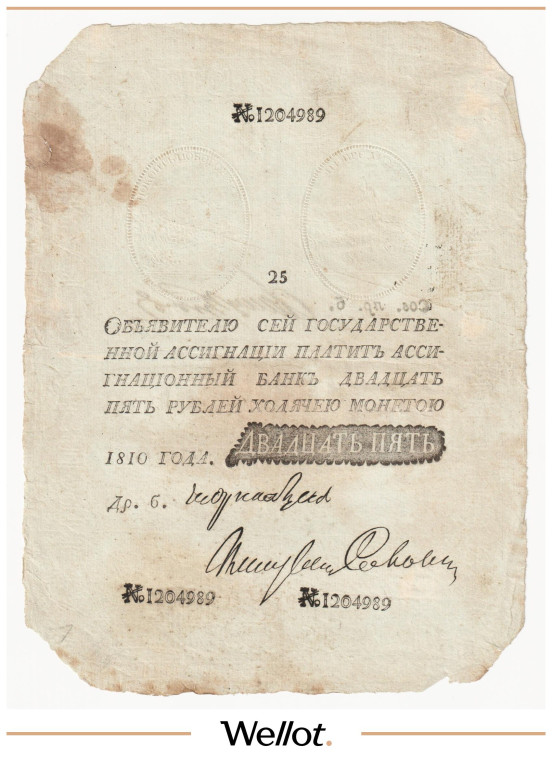 №1204989
25
ОБЪЯВИТЕЛЮ СЕЙ ГОСУДАРСТВЕ-
ННОЙ АССИГНАЦIИ ПЛАТИТЪ АССИ-
ГНАЦIОННЫЙ БАНКЪ ДВАДЦАТЬ
ПЯТЬ РУБЛЕЙ ХОДЯЧЕЮ МОНЕТОЮ
1810 ГОДА. ДВАДЦАТЬ ПЯТЬ
Др. б.
№1204989 №1204989
Wellot.